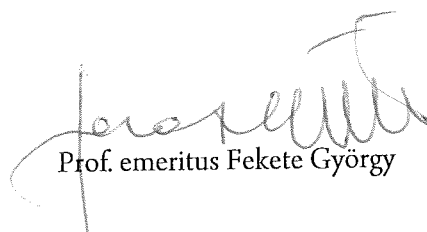 Prof. emeritus Fekete György